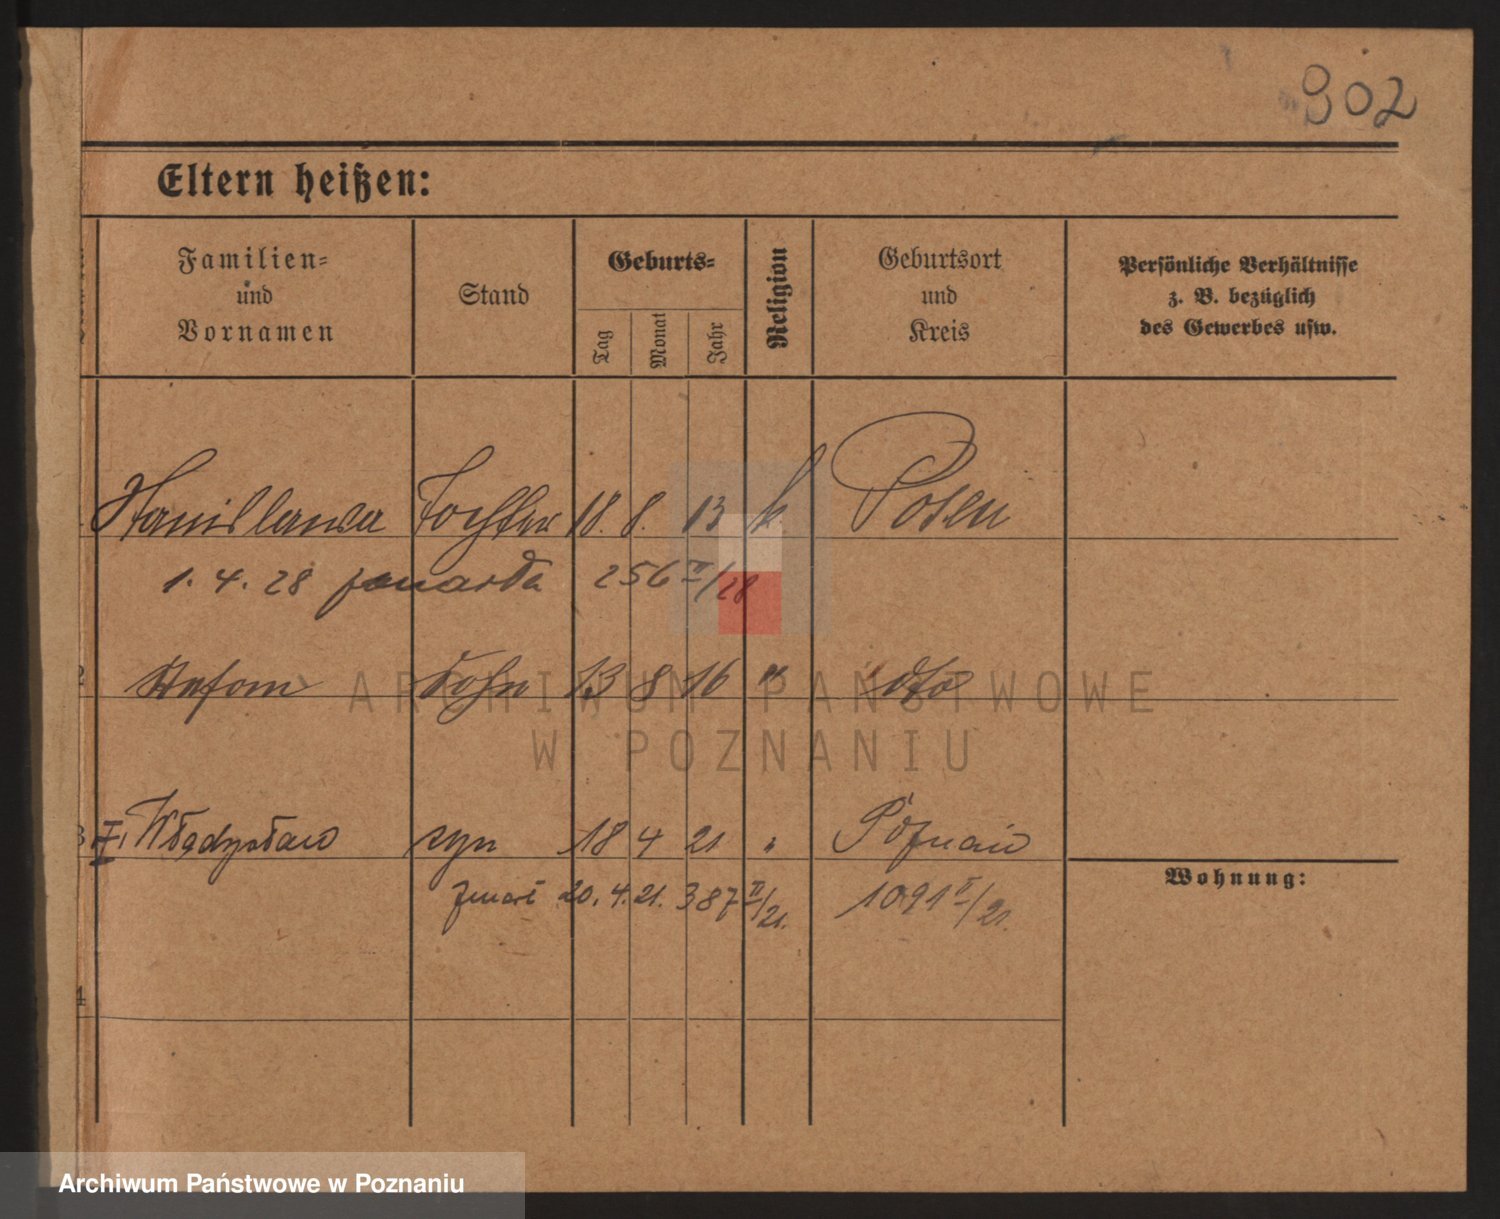 902
Eltern heißen:
Familien=
und
Vornamen
Stand
Geburts=
Tag
Monat
Jahr
Religion
Geburtsort
und
Kreis
Persönliche Verhältnisse
z. B. bezüglich
des Gewerbes usw.
Stanislawa Tochter 18. 8. 13 k. Posen
1. 4. 28 zmarła 256 II/28
2 Stefan Sohn 13 8 16 " dto
3 II, Władysław syn 18 4 21 " Poznań
zmarł 20. 4. 21. 387 II/21. 1091 I/21.
Wohnung:
4
ARCHIWUM PAŃSTWOWE
W POZNANIU
Archiwum Państwowe w Poznaniu